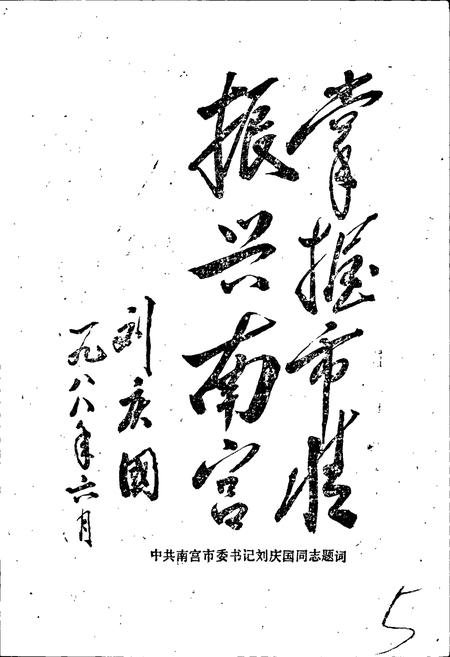 掌握市情
振兴南宫
刘庆国
一九八八年六月
中共南宫市委书记刘庆国同志题词
5